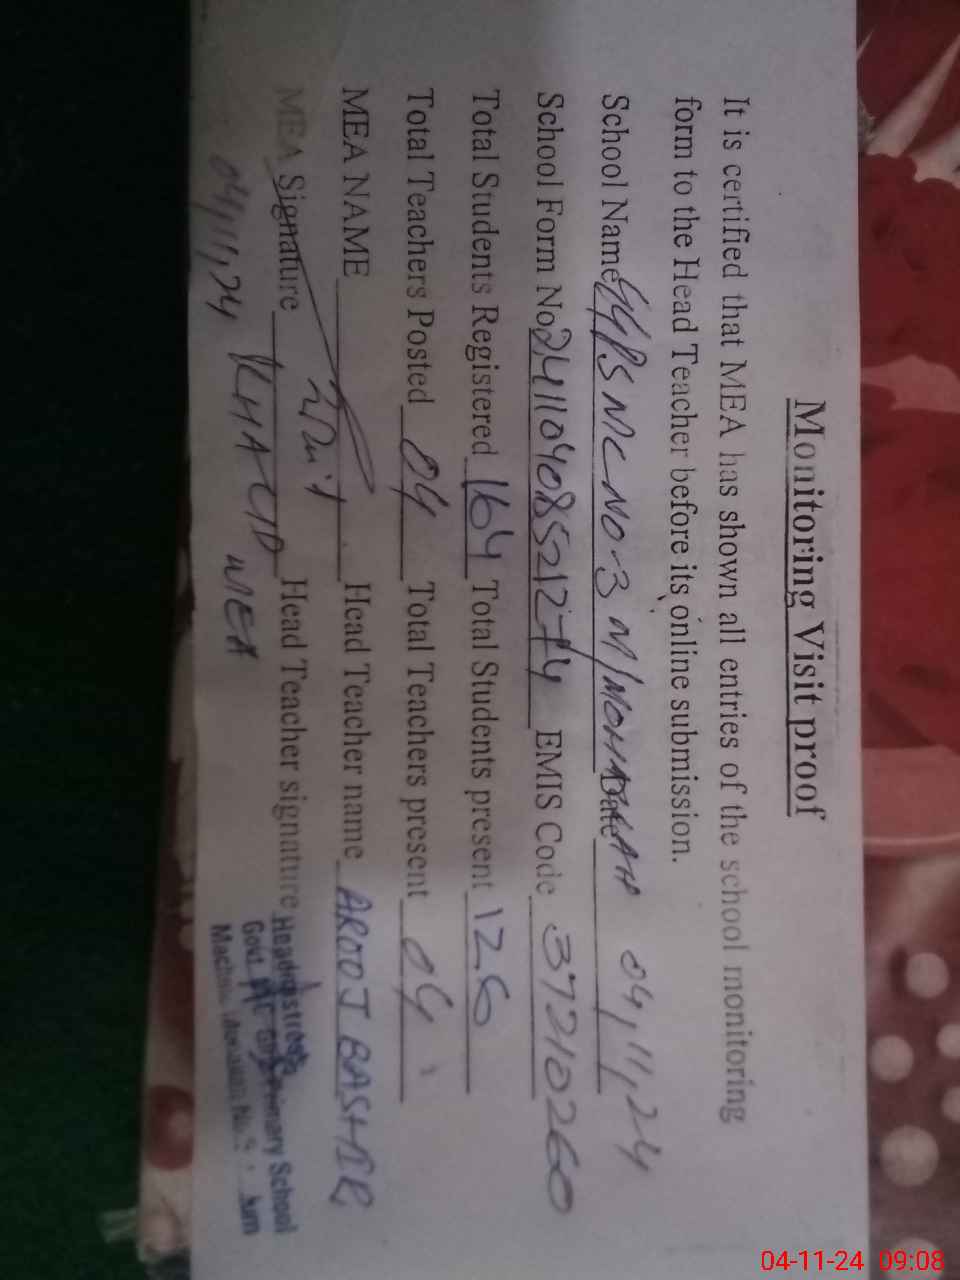 Monitoring Visit proof
It is certified that MEA has shown all entries of the school monitoring
form to the Head Teacher before its online submission.
School Name GGPS MC NO-3 M/MOHALLAH Date 04,11,24
School Form No 241104085212774 EMIS Code 37210260
Total Students Registered 164 Total Students present 126
Total Teachers Posted 04 Total Teachers present 04
MEA NAME Head Teacher name AROOJ BASHIR
MEA Signature Head Teacher signature
Headmistress
Govt. MC Primary School
No. 3
04,11,24 MEA
04-11-24 09:08